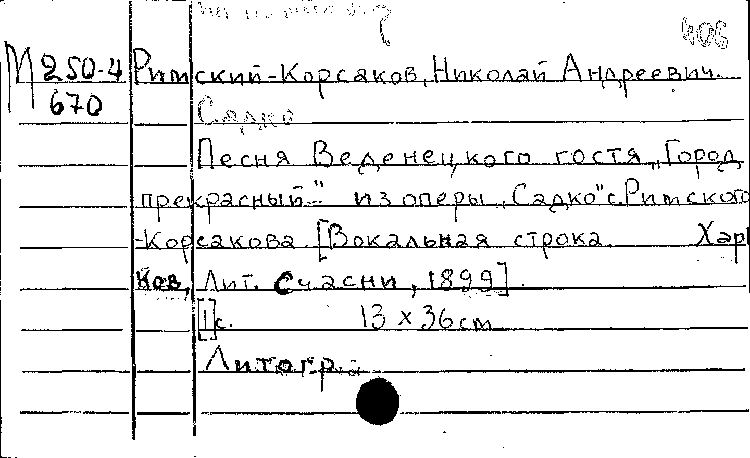 406
М 250-4 Римский-Корсаков, Николай Андреевич.
670
Садко
Песня Веденецкого гостя „Город
прекрасный..." из оперы „Садко" с. Римского
-Корсакова. [Вокальная строка. Харь
ков, Лит. Счасни, 1899].
[1]с. 13 х 36 см
Литогр.